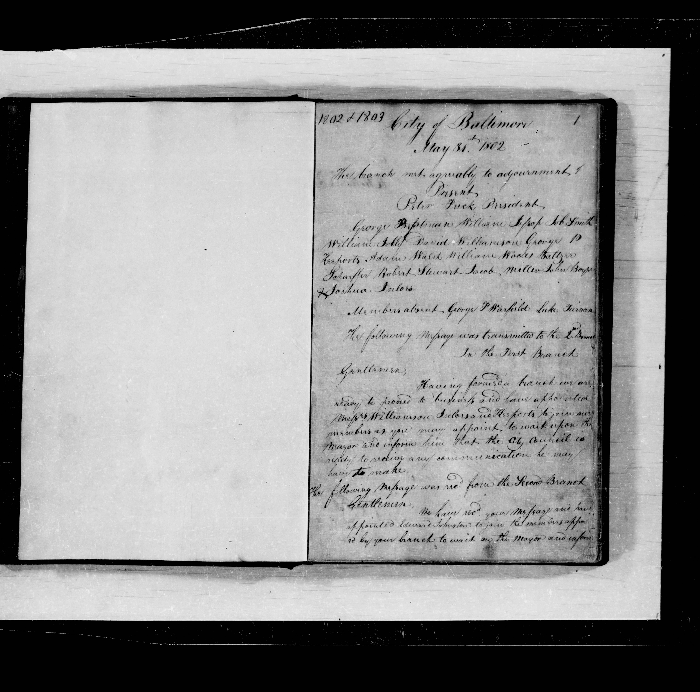 1802 & 1803 City of Baltimore 1
May 31st 1802
The branch met agreeably to adjournment
Present
Peter President
George William Jessop Job Smith
William David Williamson George P
Keeports Adam Welsh William Woods Baltzer
Schaeffer Robert Stewart Jacob Miller John
& Joshua Inloes
Members absent George P Warfield Luke Tiernan
The following Message was transmitted to the 2d Branch
In the First Branch
Gentlemen,
Having formed a branch we are
ready to proceed to business and have appointed
Messrs Williamson Inloes and Keeports to join such
members as you may appoint, to wait upon the
Mayor and inform him that the City Council is
ready to receive any communication he may
have to make
The following Message was recd from the Second Branch
Gentlemen
We have recd your Message and have
appointed Edward Johnston to join the members appoint
ed by your branch to wait on the Mayor and inform